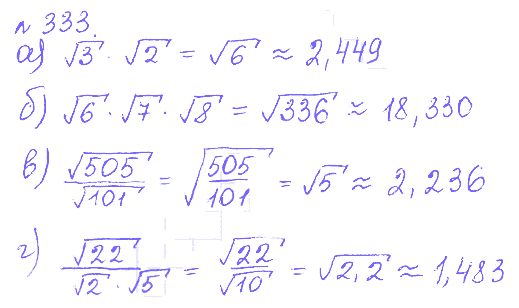 № 333.
а) √3 · √2 = √6 ≈ 2,449
б) √6 · √7 · √8 = √336 ≈ 18,330
в) √505 / √101 = √(505/101) = √5 ≈ 2,236
г) √22 / (√2 · √5) = √22 / √10 = √2,2 ≈ 1,483